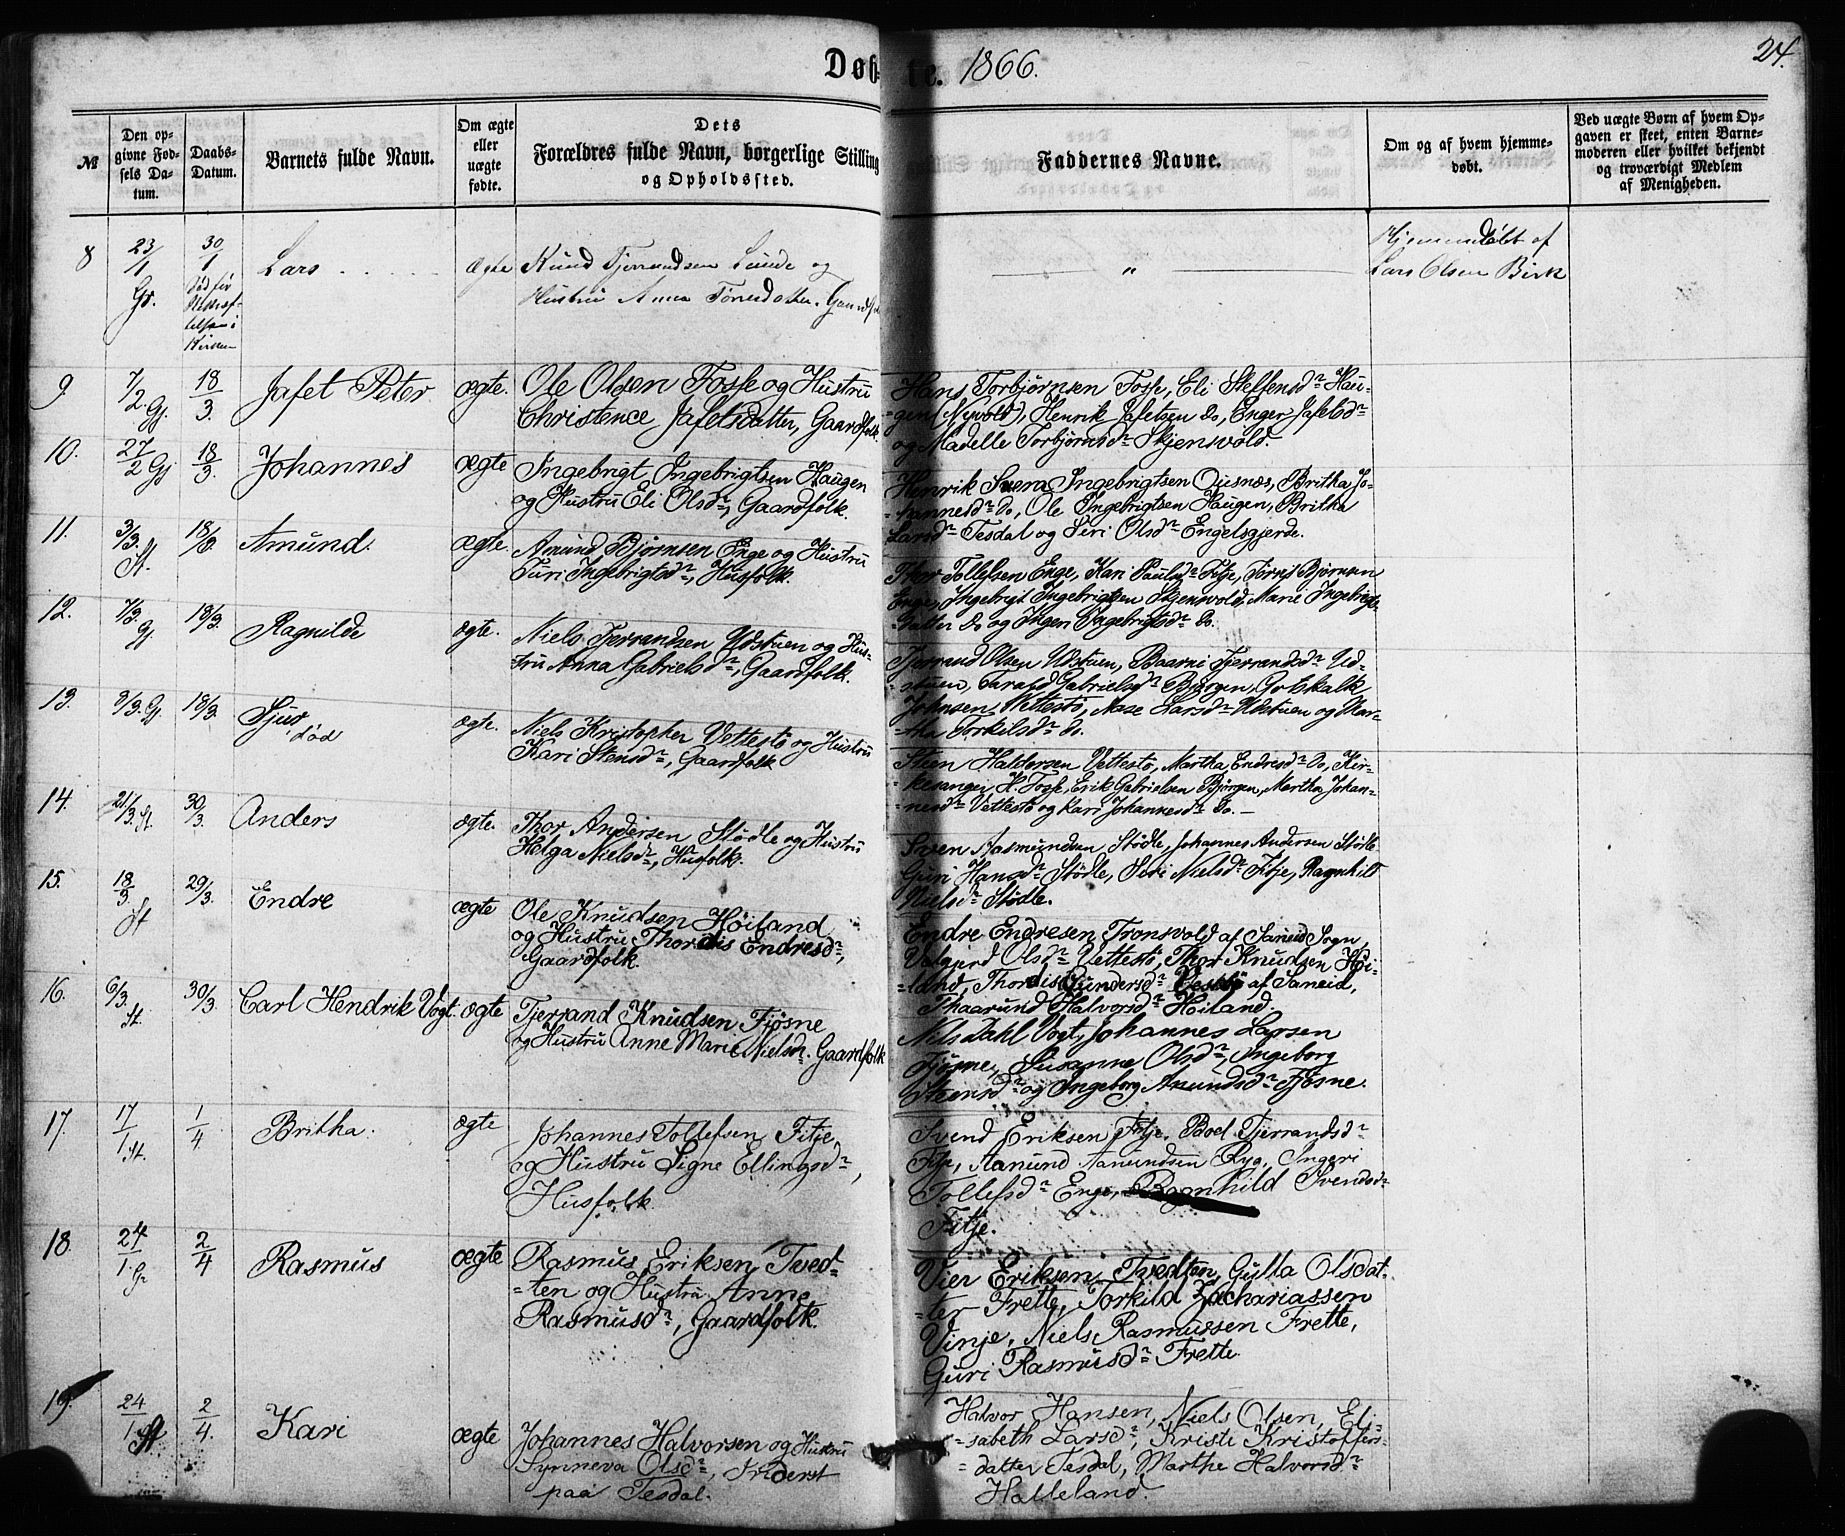 Døbte. 1866.
24.
№
Den op-
givne Fød-
sels Da-
tum.
Daabs-
Datum.
Barnets fulde Navn.
Om ægte
eller
uægte
fødte.
Dets
Forældres fulde Navn, borgerlige Stilling
og Opholdssted.
Faddernes Navne.
Om og af hvem hjemme-
døbt.
Ved uægte Børn af hvem Op-
gaven er skeet, enten Barne-
moderen eller hvilket bekjendt
og troværdigt Medlem
af Menigheden.
8 23/1 Gr. 30/1 Lars Ægte Knud Tjerrandsen Lunde og
Hustru Anna Tørresdatter. Gaardfo
død før
i
Kirken
"
Hjemmedøbt af
Lars Olsen Birk
9 7/2 Gj. 18/3 Jafet Peter ægte. Ole Olsen Fosse og Hustru
Christence Jafetsdatter, Gaardfolk
Hans Torbjørnsen Fosse, Eli Steffensdn Hau-
-gen (Nyvold), Henrik Jafetsen do, Enger Jafetsdn
og Madelle Torbjørnsdn Skjensvold.
10. 27/2 Gj 18/3 Johannes ægte Ingebrigt Ingebrigtsen Haugen
og Hustru Eli Olsdn, Gaardfolk.
Henrik Ingebrigtsen Øusnæs, Britha Jo-
-hannesdn do, Ole Ingebrigtsen Haugen, Britha
Larsdn Tesdal og Siri Olsdn Engelsgjerde.
11. 3/3. St. 18/3 Amund. ægte. Amund Bjørnsen Enge og Hustru
Turi Ingebrigtsdn, Husfolk.
Thor Tollefsen Enge, Kari Paulsdn Fitje, Tørris Bjørnsen
Enge, Ingebrigt Ingebrigtsen Skjensvold, Marie Ingebrigts-
datter do og Inger Ingebrigtsdn do.
12. 7/3. Gj 18/3. Ragnilde ægte. Niels Tjerrandsen Udstuen og Hus-
tru Anna Gabrielsdn, Gaardfolk.
Tjerrand Olsen Udstuen, Baarni Tjerrandsdn Ud-
-stuen, Tarald Gabrielsdn Bjørgen, Gotskalk
Johnsen Vettestø, Aase Larsdn Udstuen og Mar-
-tha Torkilsdn do.
13. 3/3. Gj. 18/3. Sjur, ægte. Niels Kristopher Vettestø og Hustru
død
Kari Stensdn, Gaardfolk
Steen Haldorsen Vettestø, Martha Endresdn do, Kir-
-kesanger H. Fosse, Erik Gabrielsen Bjørgen, Martha Johan-
-nesdn Vettestø og Kari Johannesdn do. —
14. 21/3. St 30/3. Anders ægte. Thor Andersen Stødle og Hustru
Helga Nielsdn, Husfolk.
Sven Aasmundsen Stødle, Johannes Andersen Stødle
Guri Hansdn Stødle, Siri Nielsdn Fitje, Ragnhild
Nielsdn Stødle.
15. 18/3 St 29/3. Endre ægte Ole Knudsen Høiland
og Hustru Thordis Endresdn,
Gaardfolk.
Endre Endresen Tronsvold af Saneid Sogn,
Valgjerd Olsdn Vettestø, Thor Knudsen Høi-
-land, Thordis Gundersdn af Saneid,
Thaarund Halvorsdn Høiland.
16. 6/3. St. 30/3. Carl Hendrik Vogt. ægte Tjerrand Knudsen Fjøsne
og Hustru Anne Marie Nielsdn. Gaardfolk
Nils Dahl Vogt, Johannes Larsen
Fjøsne, Susanne Olsdn, Ingeborg
Steensdn og Ingeborg Amundsdn Fjøsne.
17. 17/1 St. 1/4 Britha. ægte Johannes Tollefsen Fitje
og Hustru Signe Ellingsdn,
Husfolk.
Svend Eriksen Fitje. Boel Tjerrandsdn
Fitje, Aamund Aamundsen Ryg, Ingeri
Tollefsdn Enge, Ragnhild Svendsdn
Fitje.
18. 24/1. Gr 2/4 Rasmus ægte Rasmus Eriksen Tved-
-ten og Hustru Anne
Rasmusdn, Gaardfolk.
Vier Eriksen Tvedten, Gylla Olsdat-
-ter Frette, Torkild Zachariassen
Vinje, Niels Rasmussen Frette,
Guri Rasmusdn Frette.
19. 24/1 St 2/4. Kari ægte Johannes Halvorsen og Hustru
Synneva Olsdn, Inderst
paa Tesdal.
Halvor Hansen, Niels Olsen, Eli-
-sabeth Larsdn, Kristi Kristoffers-
-datter Tesdal, Marthe Halvorsdn
Halleland.